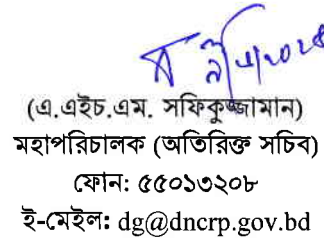 (এ.এইচ.এম. সফিকুজ্জামান)
মহাপরিচালক (অতিরিক্ত সচিব)
ফোন: ৫৫০১৩২০৮
ই-মেইল: dg@dncrp.gov.bd